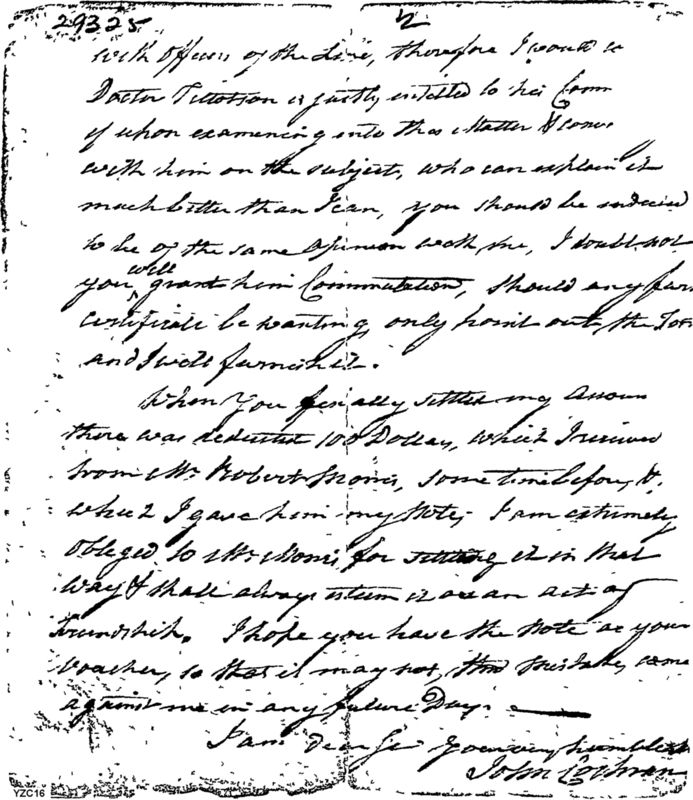 29325 2
with Officers of the Line, therefore I would
Doctor Tillotson is justly entitled to his Comm
if upon examening into this Matter &
with him on the subject, who can explain it
much better than I can, you should be induced
to be of the same Opinion with me, I doubt not
you will grant him Commutation, should any
certificate be wanting, only point out, the
and I will furnish it.
When You finally settled my
there was deducted 100 Dollars, which I received
from Mr. Robert Morris, sometime before, &
which I gave him my Note; I am extremely
obleged to Mr Morris for settling it in that
way & shall always esteem it as an act of
Friendship. I hope you have the Note as your
Voucher, so that it may not, thro mistake, come
against me in any future Day.
I am Dear Sir Your very humble
John Cochran
YZC16